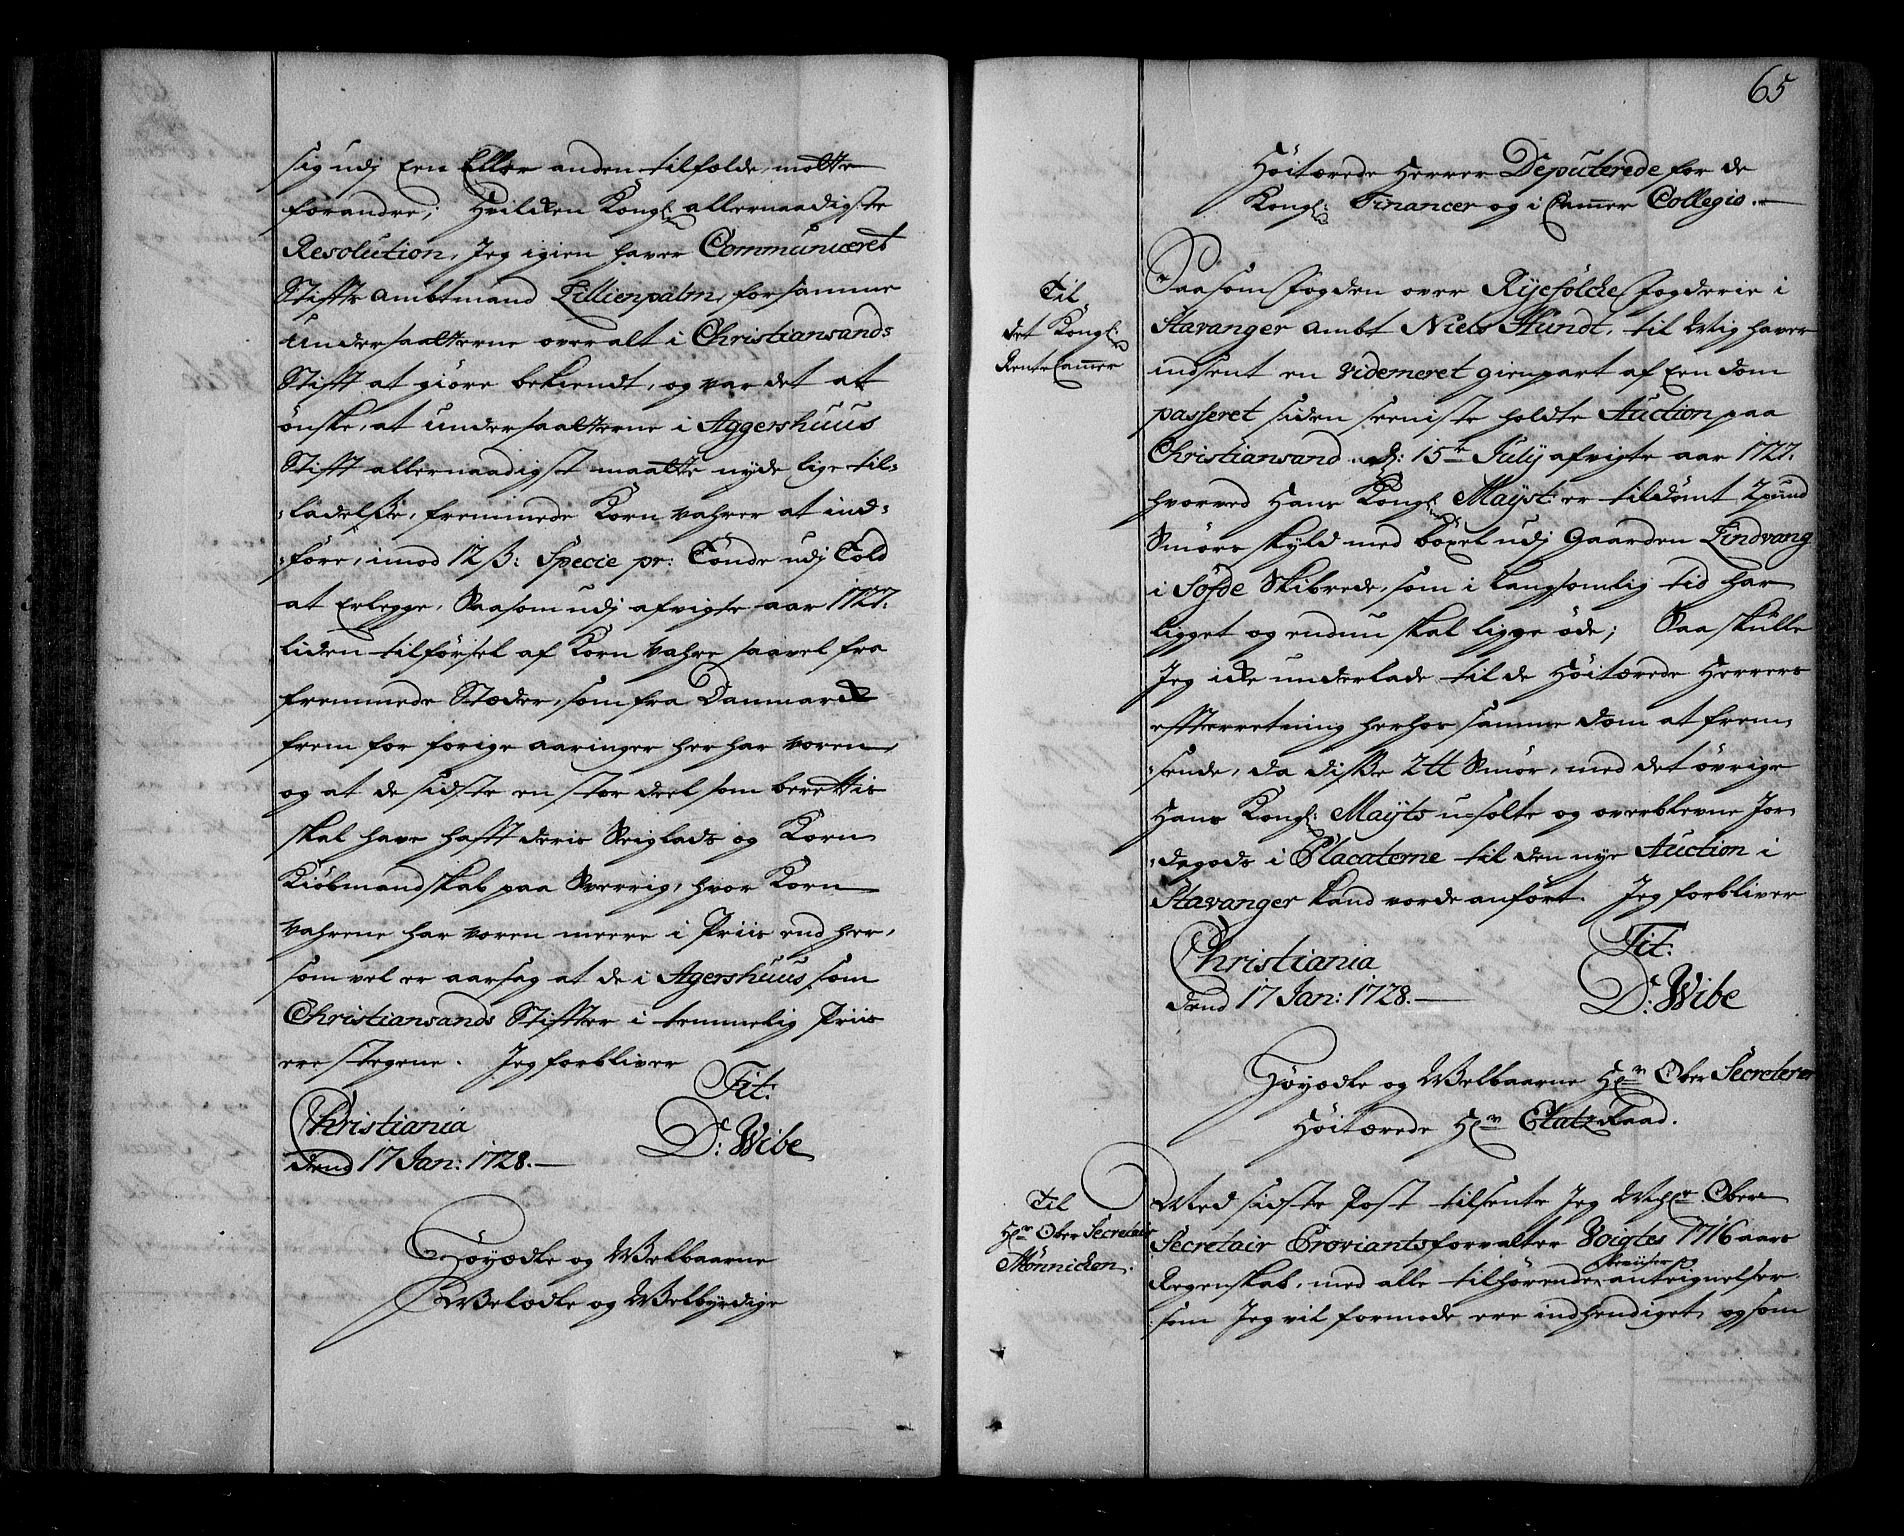 sig udj Een Eller anden tilfælde motte
forandre; Hvilken Kongl: allernaadigste
Resolution, Jeg igien haver Communiceret
Stiffts ambtmand Lillienpalm, for samme
Undersaatterne over alt i Christiansands
Stifft at giöre bekiendt, og var det at
önske, at undersaatterne i Aggershuus
Stifft allernaadigst maatte nyde lige til-
-ladelße, fremmede Korn Vahrer at ind-
-före, imod 12 ß: Specie pr: Tönde udj Told
at Erlegge, Saasom udj afvigte aar 1727.
liden tilförsel af Korn Vahre saavel fra
fremmede Stæder, som fra Danmarck
frem for forige aaringer her har voren,
og at de sidste en stor deel som berettis
skal have hafft deris Seiglads og Korn
Kiöbmandskab paa Sverrig, hvor Korn
Vahrene har voren meere i Priis end her,
som vel er aarsag at de i Agershuus som
Christiansands Stiffter i temmelig Priis
ere stegene. Jeg forbliver
Tit:
Christiania
dend 17 Jan: 1728.
D: Wibe
Höyædle og Welbaarne
Welædle og Welbyrdige
65
Höitærede Herrer Deputerede for de
Kongl: Financer og i Cammer Collegio.
Til
det Kongl:
Rente Cammer
Saasom fogden over Ryefölcke fogderie i
Stavanger ambt Niels Hundt, til Mig haver
indsent en Videmeret gienpart af Een dom
passeret siden seeniste holdte Auction paa
Christiansand d: 15de Julij afvigte aar 1727.
hvorved Hans Kongl: Mayst: er tildömt 2 pund
Smörs skyld med böxel udj Gaarden Lindvang
i Söfde Skibrede, som i langsomlig tid har
ligget og endnu skal ligge öde; Saa skulle
Jeg icke underlade til de Höitærede Herrers
effterretning herhos samme dom at frem-
-sende, da diße 2 tt Smör, med det övrige
Hans Kongl: Mayts usolte og overblevne Jor-
-degods i Placaterne til den nye Auction i
Stavanger kand vorde anfört. Jeg forbliver
Tit:
Christiania
dend 17 Jan: 1728.
D: Wibe
Höyædle og Welbaarne Hr Ober Secreterer
Höitærede Hr Etatz Raad.
Til
Hr Ober Secretair
Mönnichen.
Med sidste Post tilsente Jeg Ober
Secretair Proviantsforvalter Voigtes 1716 aars
Regenskab, med alle tilhörende antegnelser
som Jeg vil formode ere indhendiget, og som